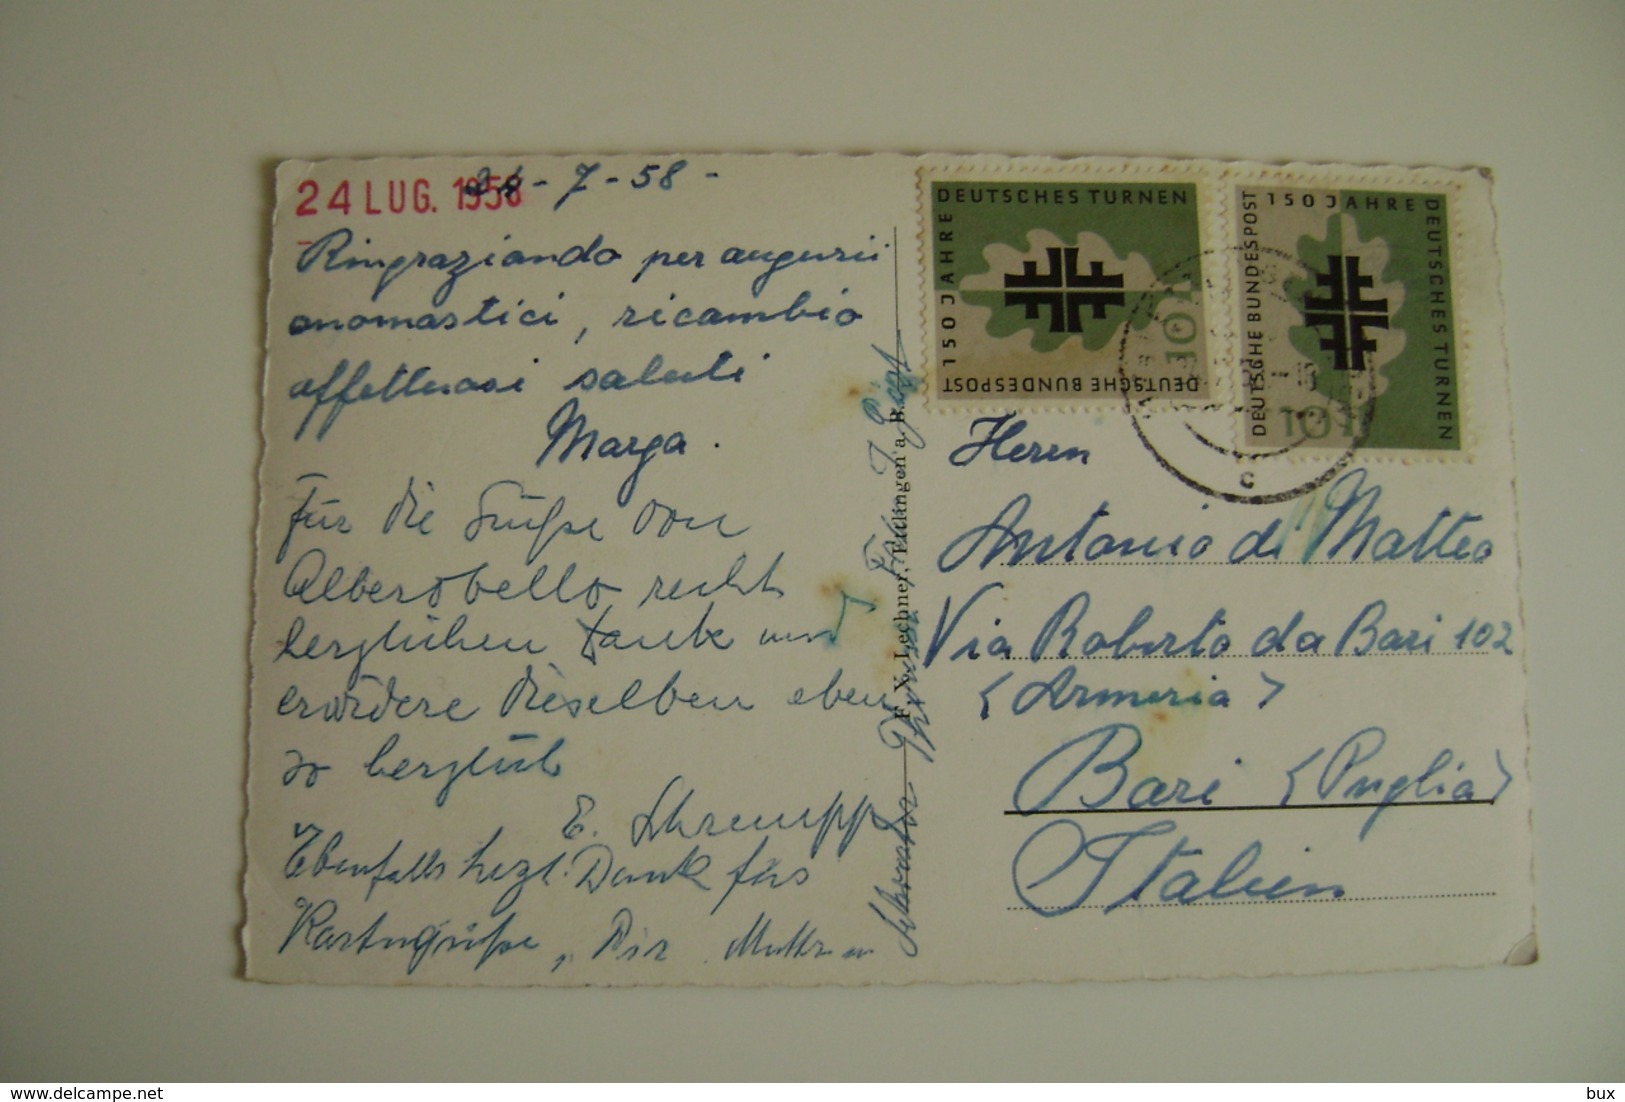 24 LUG. 1958
21-7-58-
Ringraziando per augurii
onomastici, ricambio
affettuosi saluti
Marga.
Für die Grüße von
Alberobello recht
herzlichen Dank und
erwidere dieselben eben
so herzlich
E. Schrempp
Ebenfalls herzl. Dank für
Kartengrüße, Dir, Mutter u
Schwester
F. X. Lechner, Tuttlingen a. B.
150 JAHRE
DEUTSCHES TURNEN
DEUTSCHE BUNDESPOST
10
150 JAHRE
DEUTSCHES TURNEN
DEUTSCHE BUNDESPOST
10
-18
c
Herrn
Antonio di Matteo
Via Roberto da Bari 102
(Armeria)
Bari (Puglia)
Italien
www.delcampe.net
bux